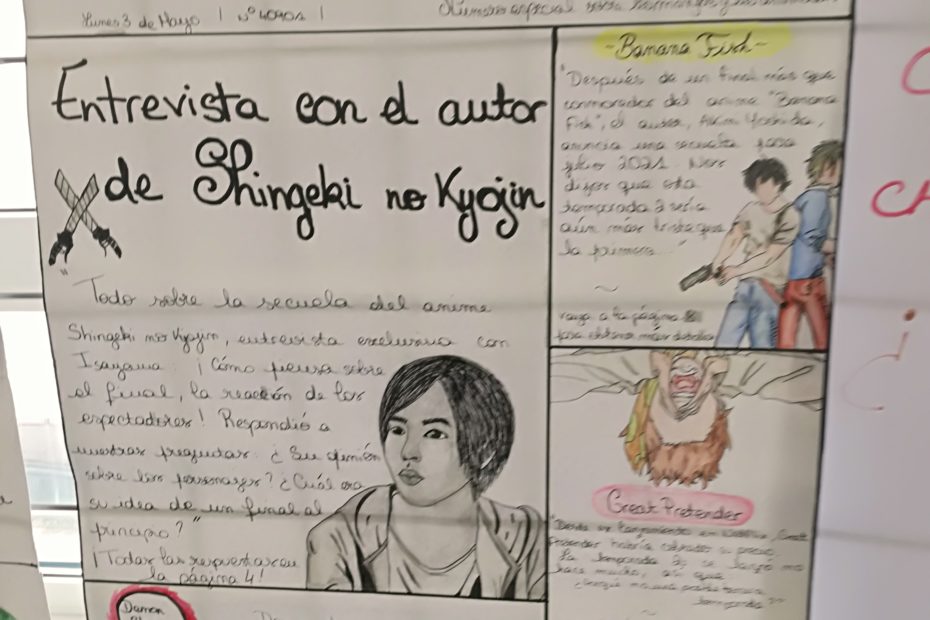 Lunes 3 de Mayo | Nº 40401 |
Número especial sobre
Entrevista con el autor
de Shingeki no Kyojin
"Todo sobre la secuela del anime
Shingeki no Kyojin, entrevista exclusiva con
Isayama: ¡Cómo piensa sobre
el final, la reacción de los
espectadores! Respondió a
nuestras preguntas: ¿Su opinión
sobre los personajes? ¿Cuál era
su idea de un final al
principio?"
¡Todas las respuestas en
la página 4!
Damon
-Banana Fish-
"Después de un final más que
del anime "Banana
Fish", el autor, Akimi Yoshida,
anuncia una secuela para
julio 2021. Nos
dijon que esta
temporada 2 sería
aún más triste que
la primera."
vaya a la página 8
para obtener más detalles
Great Pretender
"Desde su lanzamiento en Netflix, Great
Pretender habría su precio.
La temporada 2 se largo no
hace mucho, así que
temporada?"
C
CA
¿